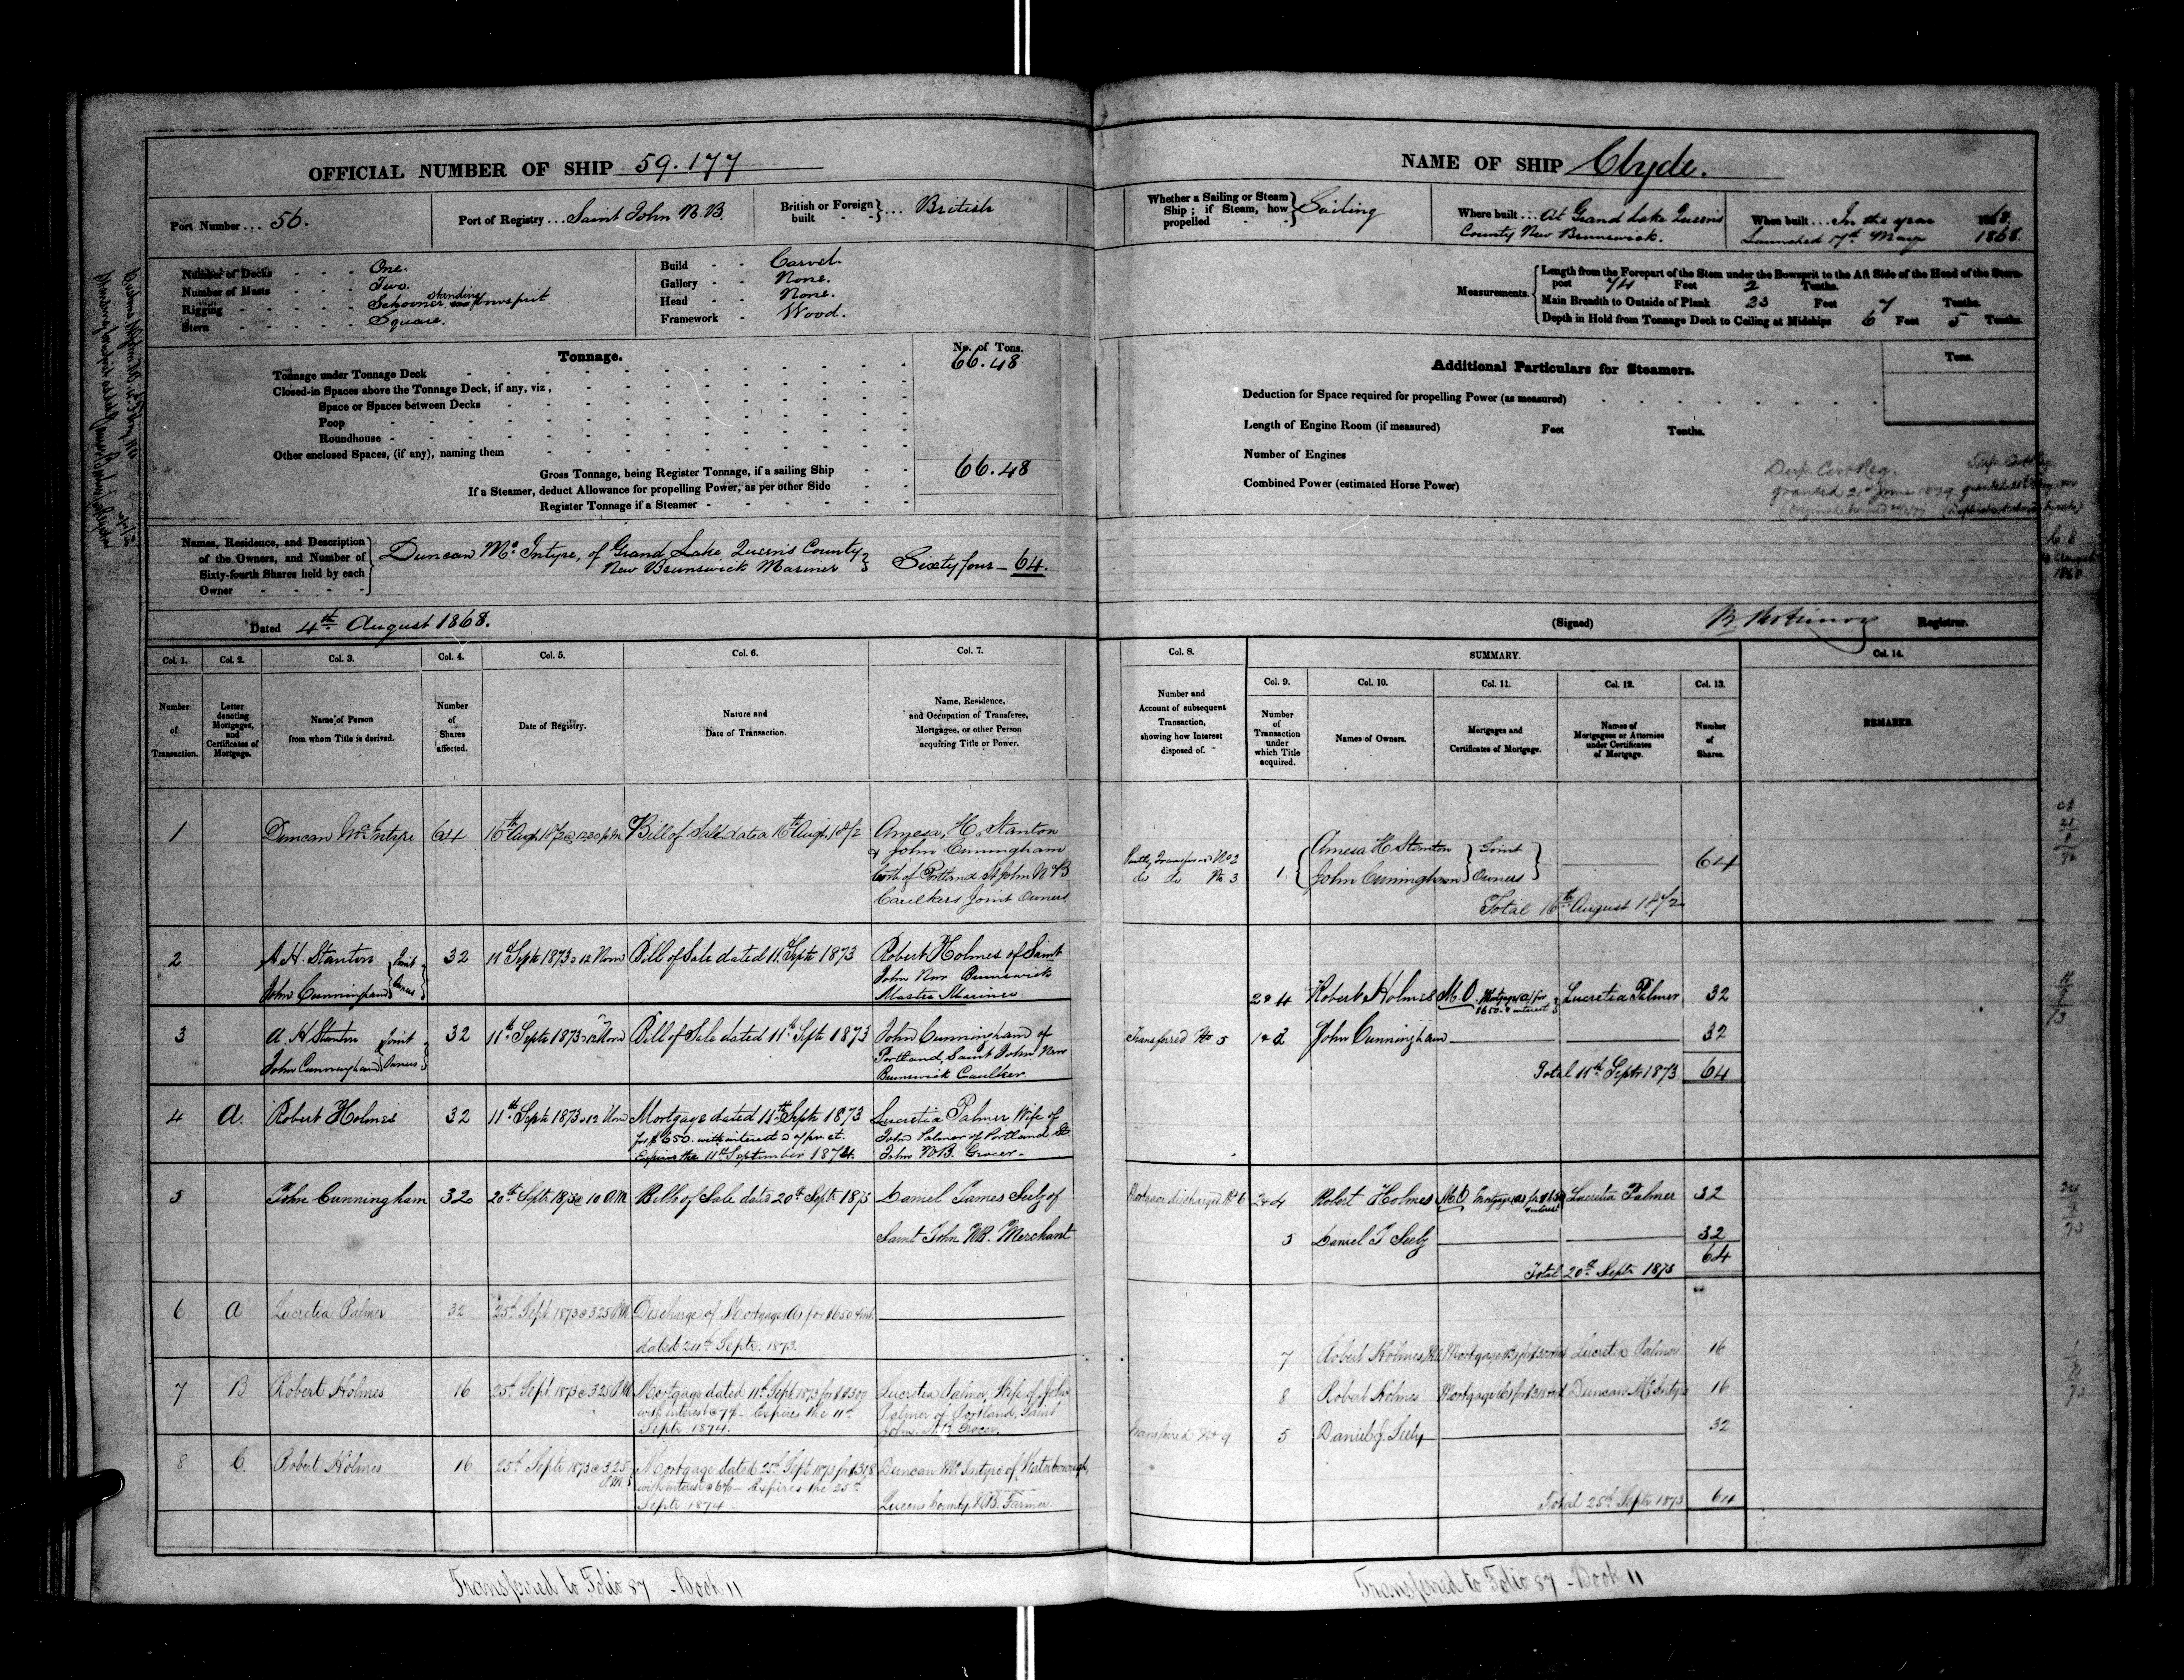 OFFICIAL NUMBER OF SHIP 59.177
Port Number ... 56.
Port of Registry ... Saint John N.B.
British or Foreign built } ... British
Number of Decks - - - One.
Number of Masts - - - Two.
Rigging - - - Schooner, standing bowsprit
Stern - - - Square.
Build - - Carvel.
Gallery - - None.
Head - - None.
Framework - Wood.
Tonnage.
No. of Tons.
Tonnage under Tonnage Deck 66.48
Closed-in Spaces above the Tonnage Deck, if any, viz,
Space or Spaces between Decks
Poop
Roundhouse
Other enclosed Spaces, (if any), naming them
Gross Tonnage, being Register Tonnage, if a sailing Ship 66.48
If a Steamer, deduct Allowance for propelling Power, as per other Side
Register Tonnage if a Steamer
Names, Residence, and Description
of the Owners, and Number of
Sixty-fourth Shares held by each
Owner
Duncan Mc Intyre, of Grand Lake, Queen's County
New Brunswick Mariner } Sixty four — 64.
Dated 4th August 1868.
NAME OF SHIP Clyde.
Whether a Sailing or Steam
Ship; if Steam, how
propelled } Sailing
Where built ... At Grand Lake Queens
County New Brunswick.
When built ... In the year 1868.
Launched 17th May 1868.
Measurements.
Length from the Forepart of the Stem under the Bowsprit to the Aft Side of the Head of the Stern-
post 74 Feet 2 Tenths.
Main Breadth to Outside of Plank 23 Feet 7 Tenths.
Depth in Hold from Tonnage Deck to Ceiling at Midships 6 Feet 5 Tenths.
Additional Particulars for Steamers.
Tons.
Deduction for Space required for propelling Power (as measured)
Length of Engine Room (if measured) Feet Tenths.
Number of Engines
Combined Power (estimated Horse Power)
Dup. Cert Reg.
granted 21st June 1879
(Signed) Registrar.
Col. 1. Number of Transaction.
Col. 2. Letter denoting Mortgages, and Certificates of Mortgage.
Col. 3. Name of Person from whom Title is derived.
Col. 4. Number of Shares affected.
Col. 5. Date of Registry.
Col. 6. Nature and Date of Transaction.
Col. 7. Name, Residence, and Occupation of Transferee, Mortgagee, or other Person acquiring Title or Power.
Col. 8. Number and Account of subsequent Transaction, showing how Interest disposed of.
SUMMARY.
Col. 9. Number of Transaction under which Title acquired.
Col. 10. Names of Owners.
Col. 11. Mortgages and Certificates of Mortgage.
Col. 12. Names of Mortgagees or Attornies under Certificates of Mortgage.
Col. 13. Number of Shares.
Col. 14. REMARKS.
1 Duncan McIntyre 64 16th Augt. 1872 @ 12.30 p.m Bill of Sale dated 16th Augt. 1872 Amesa, H. Stanton
& John Cunningham
both of Portland St John N B
Caulkers Joint Owners
2 A H. Stanton
John Cunningham } Joint Owners 32 11th Septr 1873 @ 12 Noon Bill of Sale dated 11th Septr 1873 Robert Holmes of Saint
John New Brunswick
Master Mariner
3 A. H Stanton
John Cunningham } Joint Owners 32 11th Septr 1873 @ 12 Noon Bill of Sale dated 11th Septr 1873 John Cunningham of
Portland, Saint John New
Brunswick Caulker
4 A. Robert Holmes 32 11th Septr 1873 @ 12 Noon Mortgage dated 11th Septr 1873
for $650. with interest @ 7 per ct.
Expires the 11th September 1874. Lucretia Palmer Wife of
John Palmer of Portland St.
John N.B. Grocer.
5 John Cunningham 32 20th Septr. 1873 @ 10 A.M Bill of Sale dated 20th Septr 1873 Daniel James Seely of
Saint John NB. Merchant
6 A Lucretia Palmer 32 25th Sept. 1873 @ 3.25 P.M Discharge of Mortgage (A) for $650 & int.
dated 24th Septr. 1873.
7 B Robert Holmes 16 25th Sept. 1873 @ 3.25 P.M Mortgage dated 11th Sept 1873 for $
with interest @ 7% — Expires the 11th
Septr 1874. Lucretia Palmer, Wife of John
Palmer of Portland, Saint
John, N.B. Grocer.
8 C. Robert Holmes 16 25th Septr 1873 @ 3.25 P.M Mortgage dated 25th Sept. 1873 for $318
with interest @ 6% — Expires the 25th
Septr 1874 — Duncan McIntyre of Waterborough,
Queens County N.B. Farmer.
Partly Transferred No 2
do do No 3
1 { Amesa H Stanton
John Cunningham } Joint Owners 64
Total 16th August 1872
2 & 4 Robert Holmes M.O. Mortgage (A) for
$650. & interest Lucretia Palmer 32
Transferred No 5 John Cunningham 32
Total 11th Septr 1873 64
Mortgage discharged No 6 2 & 4 Robert Holmes M.O. Mortgage (A) for $650
& interest Lucretia Palmer 32
5 Daniel J Seely 32
Total 20th Septr 1873 64
7 Robert Holmes Lucretia Palmer 16
8 Robert Holmes Duncan McIntyre 16
Transferred No 9 5 Daniel J. Seely 32
Total 25th Septr 1873 64
Transferred to Folio 87 - Book 11
Transferred to Folio 87 - Book 11